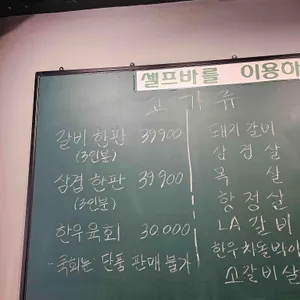 셀프바를 이용하
고기류
갈비 한판 39900
(3인분)
삼겹 한판 39900
(3인분)
한우육회 30,000
- 육회는 단품 판매 불가
돼지갈비
삼겹살
목살
항정살
LA갈비
한우차돌박이
소갈비살